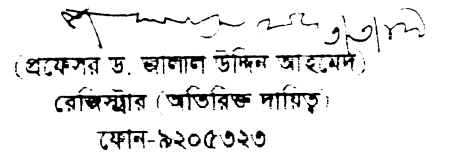 (প্রফেসর ড. জালাল উদ্দিন আহমেদ)
রেজিস্ট্রার (অতিরিক্ত দায়িত্ব)
ফোন-৯২০৫৩২৩